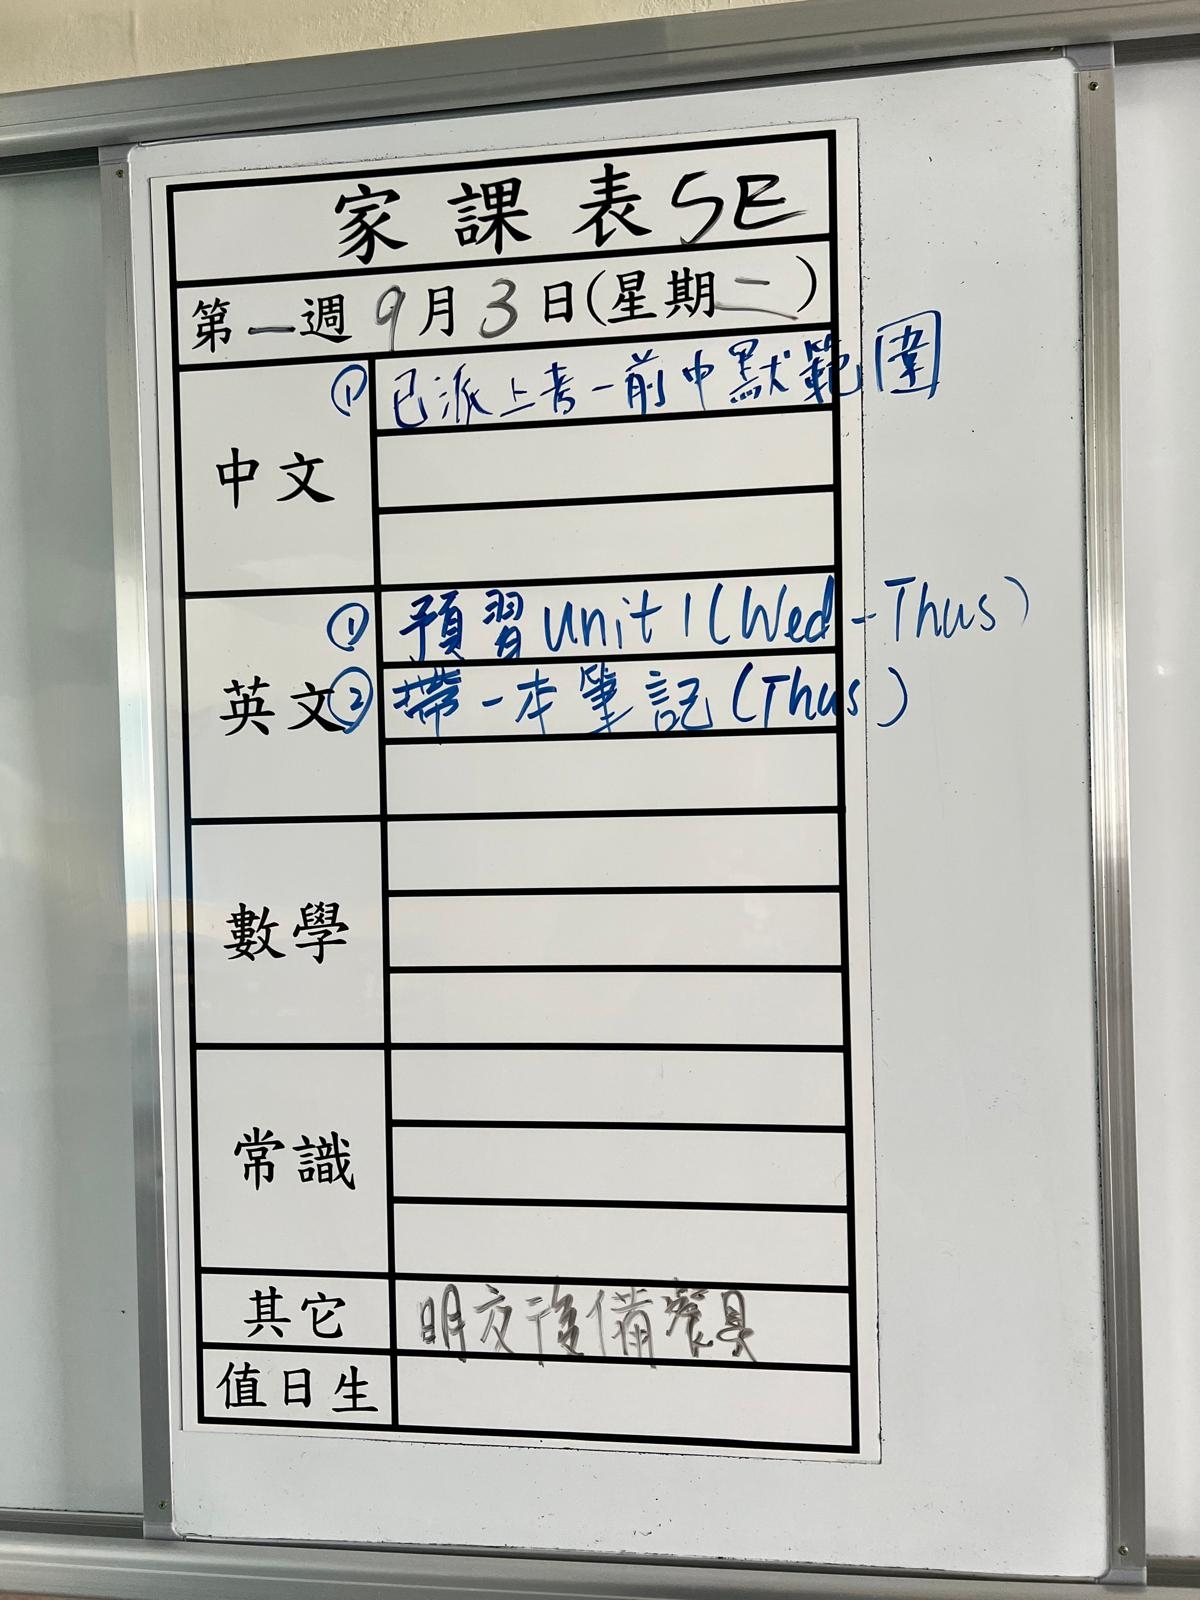 家課表 5E
第一週 9月3日(星期二)
中文
① 已派上考一前中默範圍
英文
① 預習 unit 1 (Wed - Thus)
② 帶一本筆記 (Thus)
數學
常識
其它
明交後備餐具
值日生